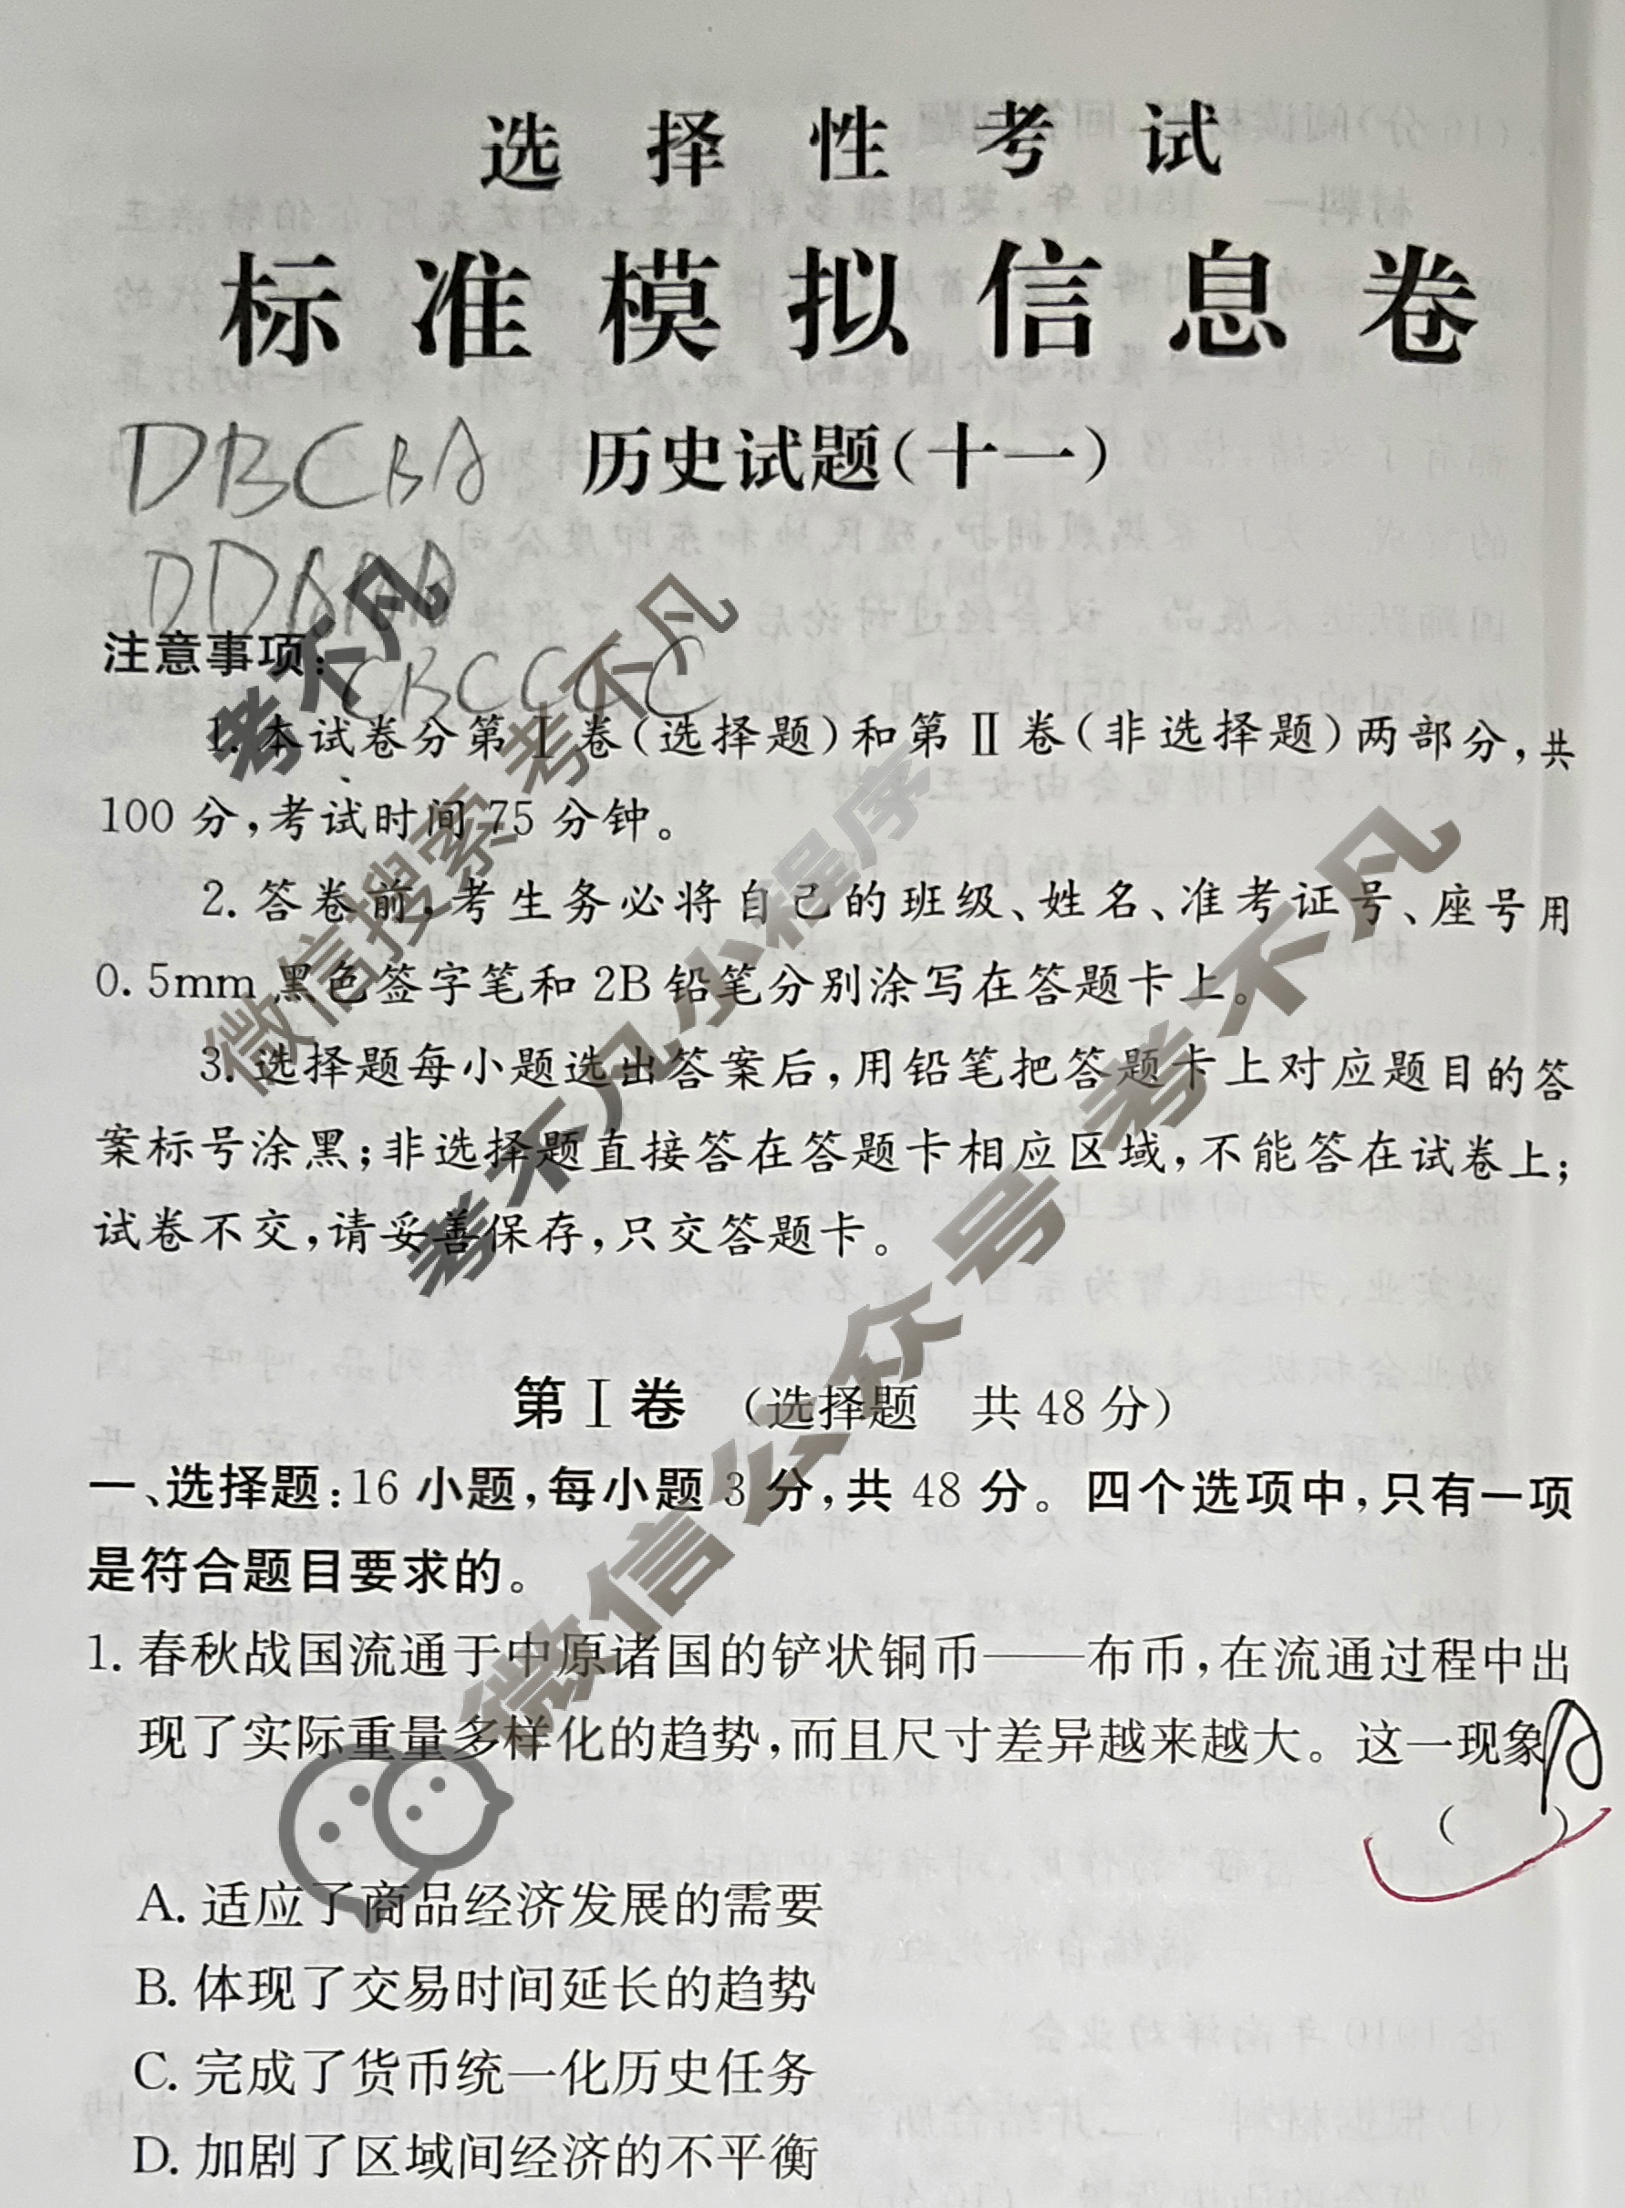 选择性考试
标准模拟信息卷
DBCBA
历史试题(十一)
CBCCCC
注意事项:
1. 本试卷分第Ⅰ卷(选择题)和第Ⅱ卷(非选择题)两部分,共
100 分,考试时间 75 分钟。
2. 答卷前,考生务必将自己的班级、姓名、准考证号、座号用
0.5mm 黑色签字笔和 2B 铅笔分别涂写在答题卡上。
3. 选择题每小题选出答案后,用铅笔把答题卡上对应题目的答
案标号涂黑;非选择题直接答在答题卡相应区域,不能答在试卷上;
试卷不交,请妥善保存,只交答题卡。
第Ⅰ卷 (选择题 共 48 分)
一、选择题:16 小题,每小题 3 分,共 48 分。四个选项中,只有一项
是符合题目要求的。
1. 春秋战国流通于中原诸国的铲状铜币——布币,在流通过程中出
现了实际重量多样化的趋势,而且尺寸差异越来越大。这一现象
( )
A
A. 适应了商品经济发展的需要
B. 体现了交易时间延长的趋势
C. 完成了货币统一化历史任务
D. 加剧了区域间经济的不平衡
考不凡
微信搜索 考不凡
考不凡小程序
微信公众号 考不凡